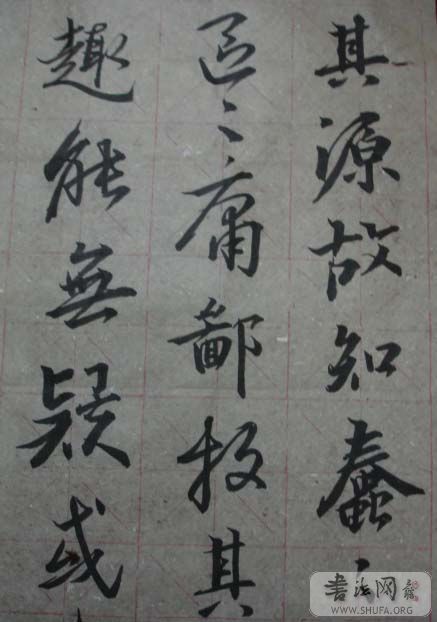 其源故知蠢〻
區〻庸鄙投其
趣能無疑惑
书法网
WWW.SHUFA.ORG